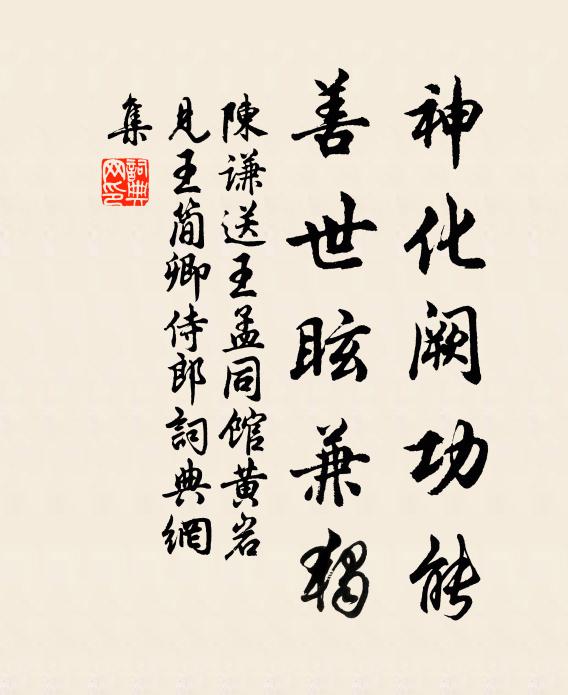 神化阙功能
善世眩兼獨
陳謙送王孟同館黄岩
見王简卿侍郎詞典網
集
詞典網印